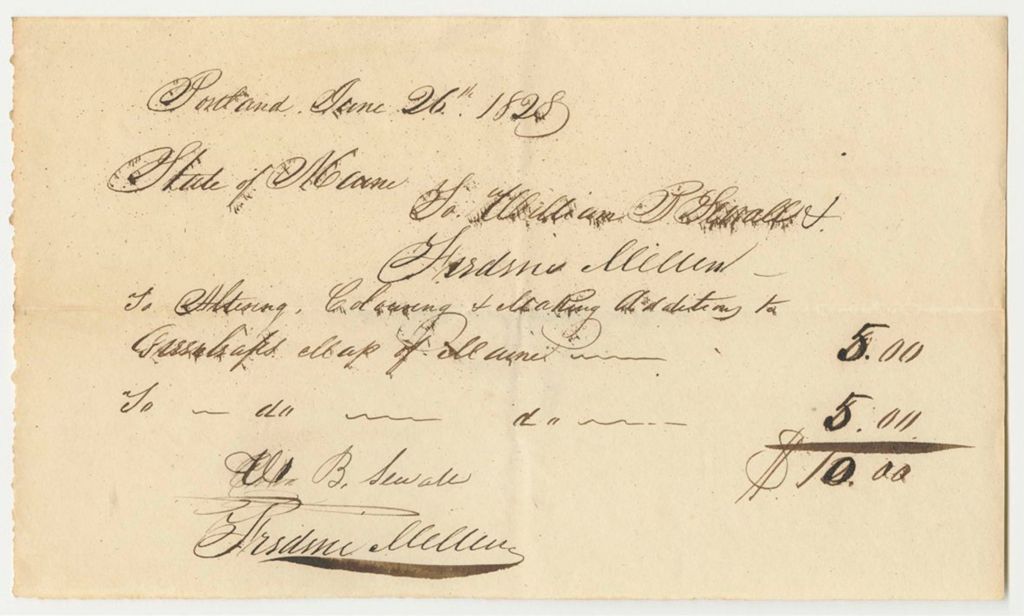 Portland June 26th. 1828
State of Maine
To William B Sewall &
Frederic Mellen
To Altering, Colouring & Making Additions to
Greenleafs Map of Maine 5.00
To do do 5.00
$10.00
Wm B. Sewall
Frederic Mellen